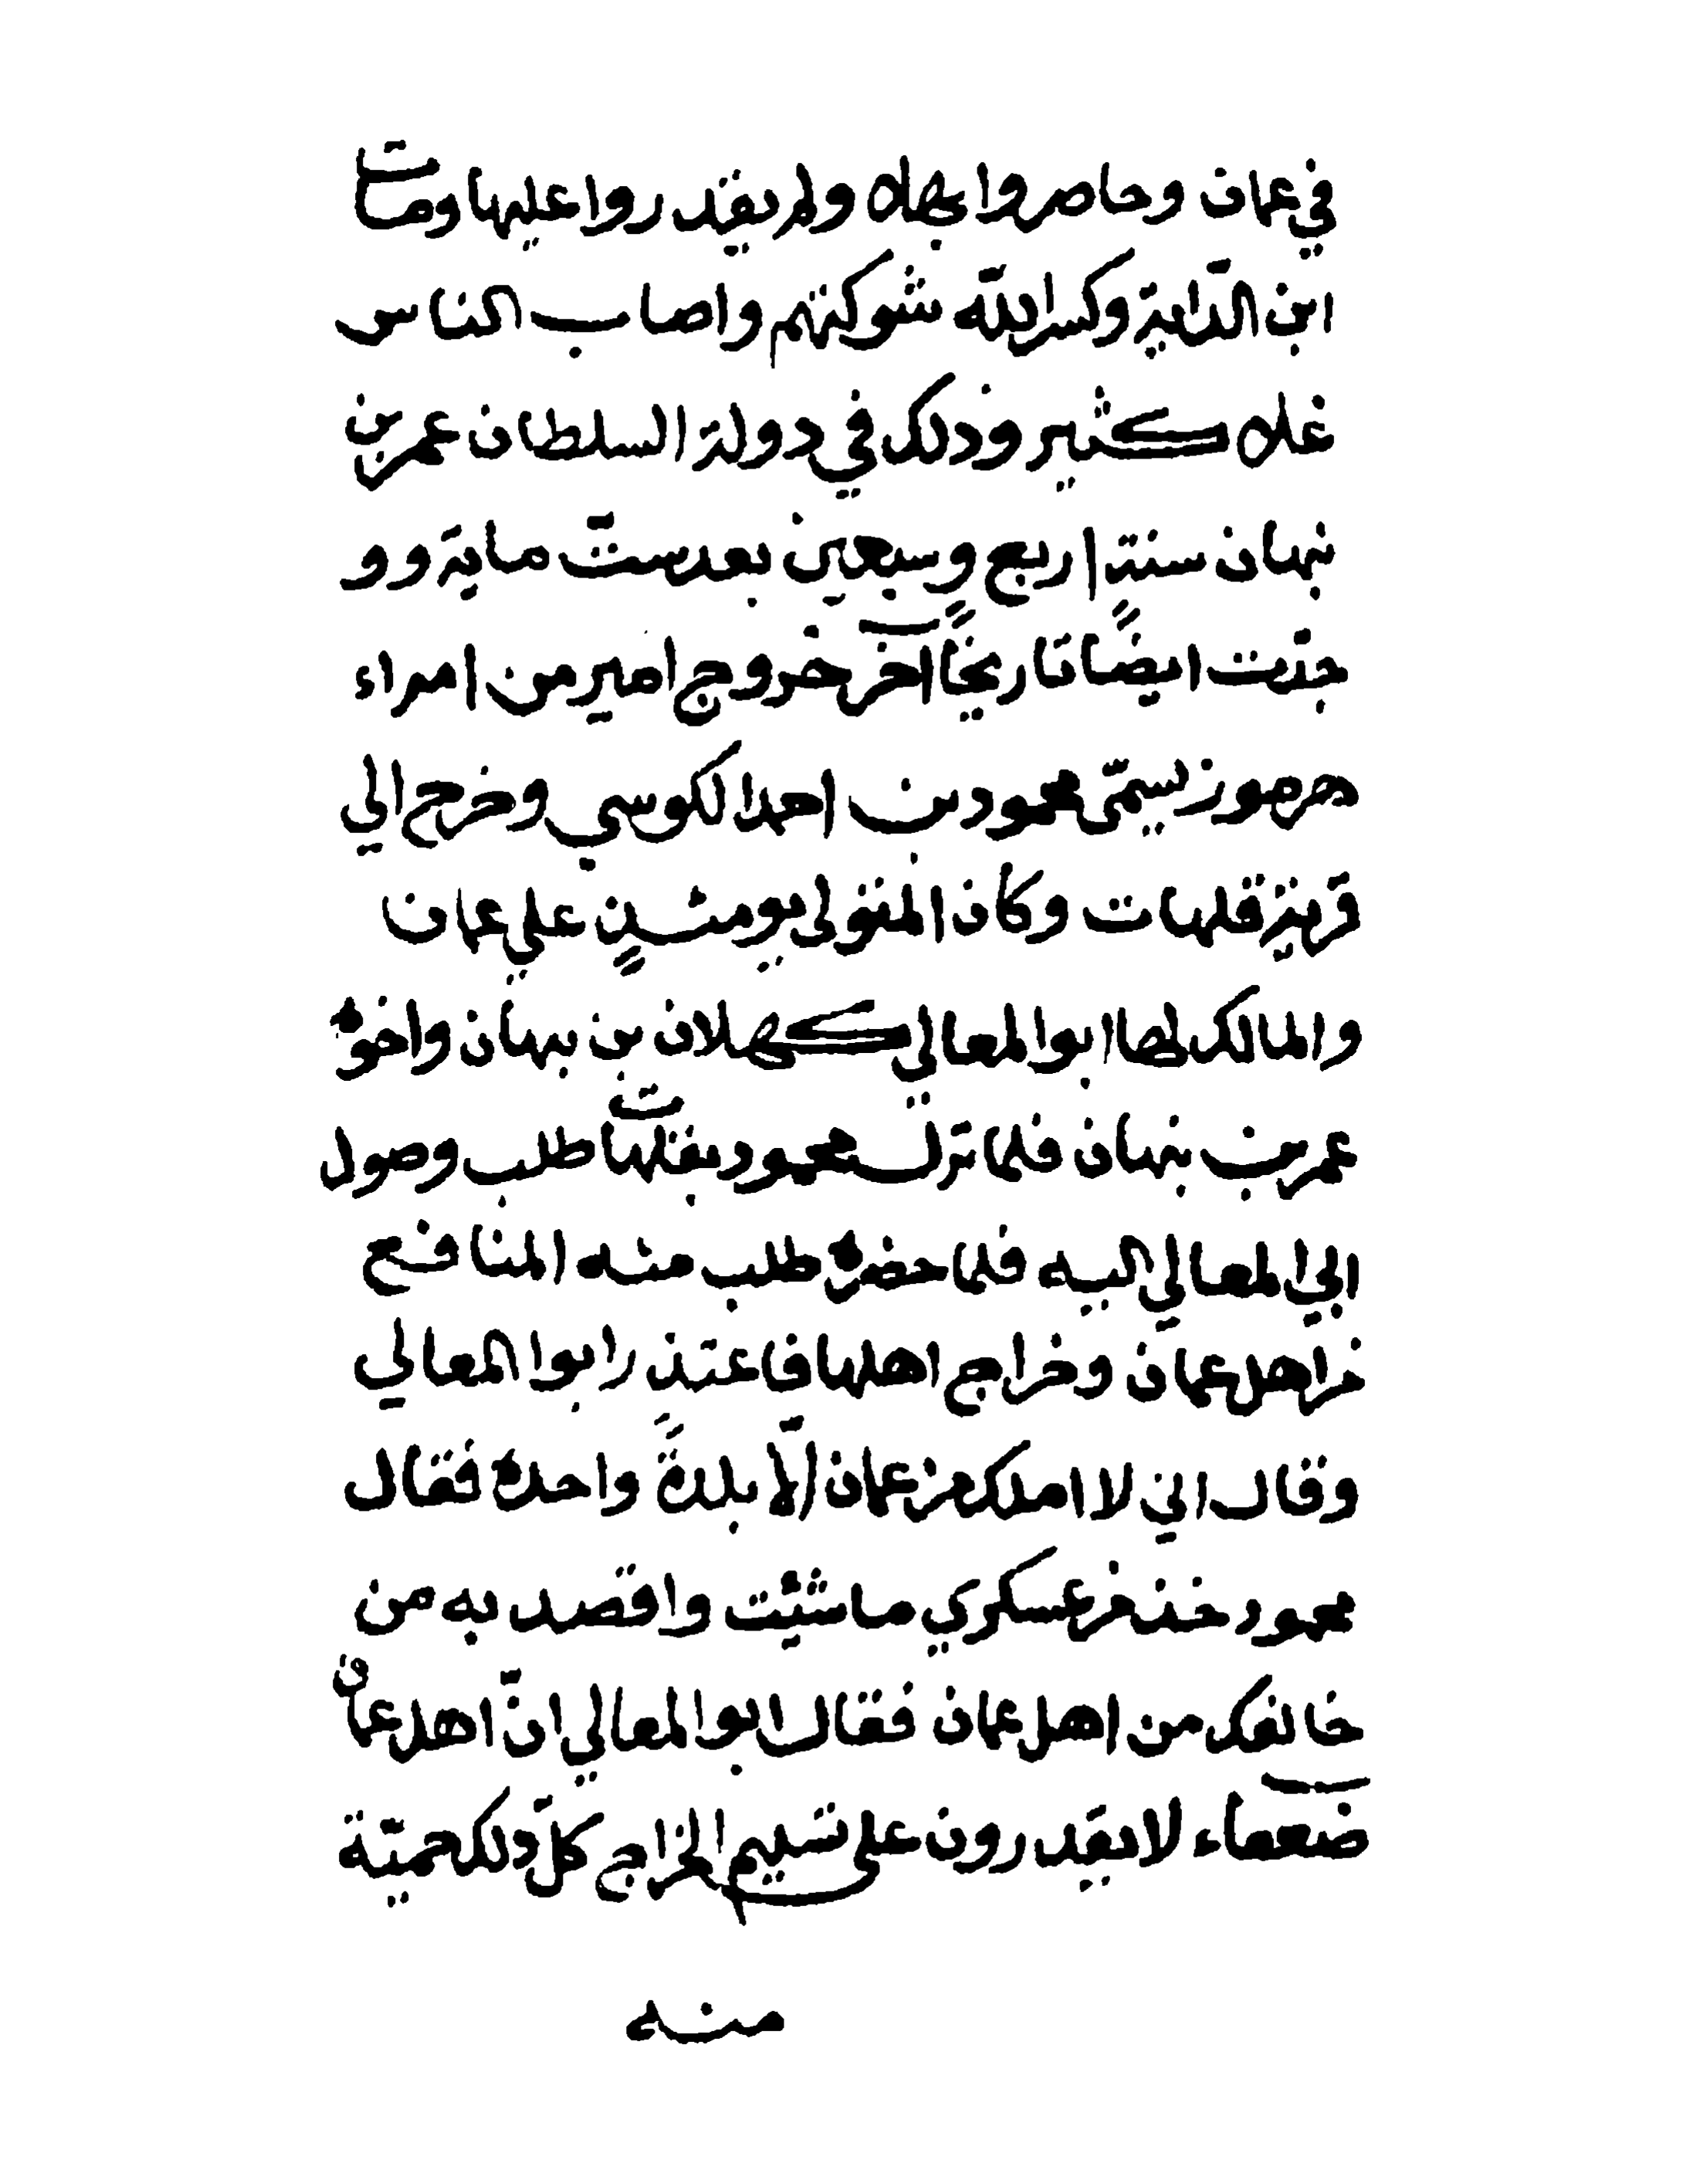 في عمان وحاصروا بهلاه ولم يقدروا عليها ومات
ابن الدّاية وكسر اللّه شوكتهم واصاب الناس
غلاه كثير وذلك في دولة السلطان عمر بن
نبهان سنة اربع وسبعين بعد ستّ ماية وو
جدّت ايضًا تاريخًا آخر خروج امير من امراء
هرموز يسمّى محمود بن احمد الكوسي وخرج الي
قرية قلهات وكان المتولي يومئذٍ علي عمان
والمالك لها ابوا المعالي كهلان بن نبهان واخوه
عمر بن نبهان فلما نزل محمود بقلهات طلب وصول
ابي المعالي اليه فلما حضره طلب منه المنافع
من اهل عمان وخراج اهلها فاعتذر ابوا المعالي
وقال اني لا املك من عمان الّا بلدةً واحدة فقال
محمود خذ من عسكري ما شئت واقصد به من
خالفك من اهل عمان فقال ابوا المعالي انّ اهل عمان
ضعفاء لا يقدرون على تسليم الخراج كلّ ذلك حميّة
منه